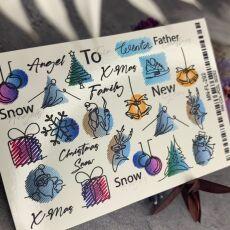 Angel
To
Winter
Father
X-Mas
Family
Snow
New
Christmas
Snow
Snow
X-Mas